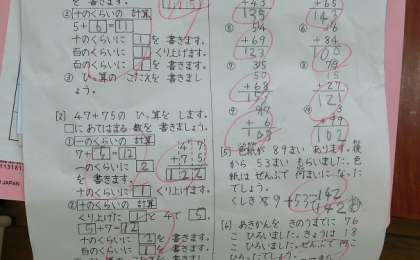 ②十のくらいの 計算
5+6=11
十のくらいに 1 を 書きます。
百のくらいに 1 くり上げます。
百のくらいに 1 を 書きます。
③ ひっ算の こたえを 書きましょう。
[2] 47+75の ひっ算を します。
□にあてはまる 数を 書きましょう。
①一のくらいの 計算
7+5=12
一のくらいに 2
を 書きます。
十のくらいに 1 くり上げます。
47
+75
122
②十のくらいの 計算
くり上げた 1 と 4で 5。
5+7=12
十のくらいに 2 を 書きます。
百のくらいに 1 くり上げます。
+43
135
+65
142
54
+69
⑦ 35
+78
50
+68
15
+27
97
+6
103
+99
102
[5] 色紙が 89まい あります。後
から 53まい もらいました。色
紙は ぜんぶで 何まいに なった
でしょう。
しき 89+53=142
[6] あきかんを きのうまでに 76
こ ひろいました。きょうは 18
こ ひろいました。ぜんぶで
JAPAN